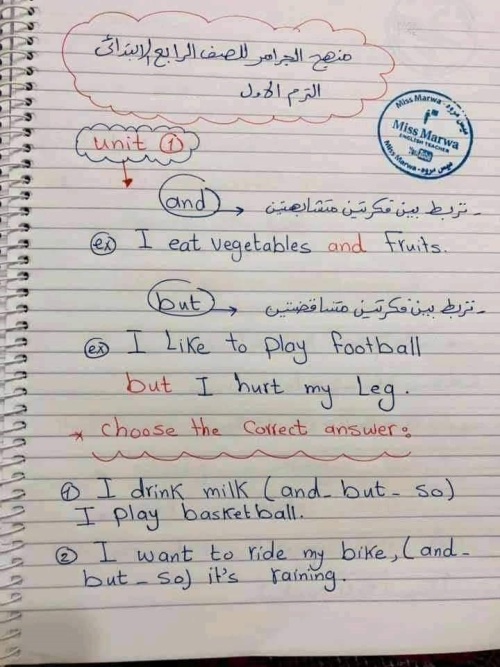 منهج الجرامر للصف الرابع الابتدائى
الترم الاول
Miss Marwa - ميس مروه
Miss Marwa
ENGLISH TEACHER
Miss Marwa - ميس مروه
unit 1
and → تربط بين فكرتين متشابهتين -
ex I eat vegetables and fruits.
but → تربط بين فكرتين متناقضتين -
ex I Like to play football
but I hurt my Leg.
* Choose the Correct answer:
1 I drink milk (and - but - so)
I play basketball.
2 I want to ride my bike, (and -
but - so) it's raining.